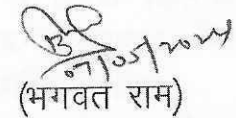 07/05/2024
(भगवत राम)